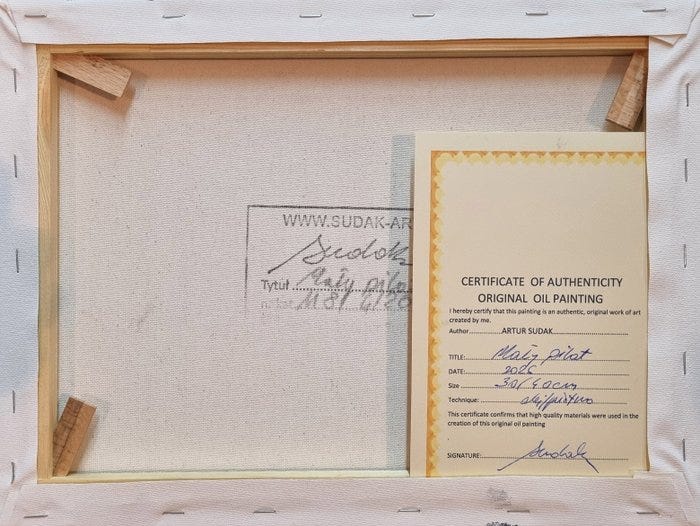 WWW.SUDAK-AR
Sudak
Tytuł Mały pilot
CERTIFICATE OF AUTHENTICITY
ORIGINAL OIL PAINTING
I hereby certify that this painting is an authentic, original work of art
created by me.
Author ARTUR SUDAK
TITLE: Mały pilot
DATE:
Size 30/40cm
Technique: olej/płótno
This certificate confirms that high quality materials were used in the
creation of this original oil painting
SIGNATURE: Sudak